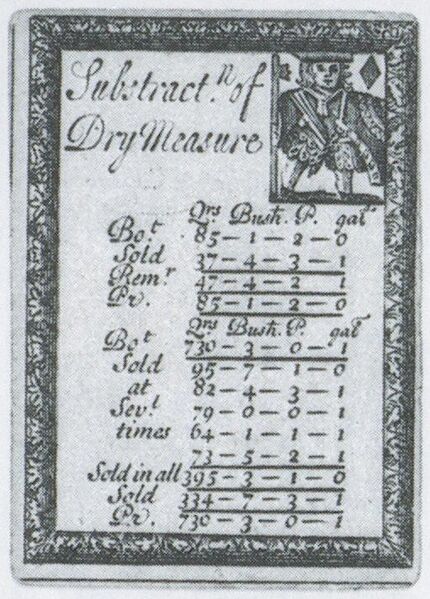 Substract.ⁿ of
Dry Measure
Qrs Bush. P. galˢ
Bo.ᵗ 85 – 1 – 2 – 0
Sold 37 – 4 – 3 – 1
Rem.ʳ 47 – 4 – 2 – 1
Pr. 85 – 1 – 2 – 0
Qrs Bush. P. galˢ
Bo.ᵗ 730 – 3 – 0 – 1
Sold 95 – 7 – 1 – 0
at 82 – 4 – 3 – 1
Sev.ˡ 79 – 0 – 0 – 1
times 64 – 1 – 1 – 1
73 – 5 – 2 – 1
Sold in all 395 – 3 – 1 – 0
Sold 334 – 7 – 3 – 1
Pr. 730 – 3 – 0 – 1